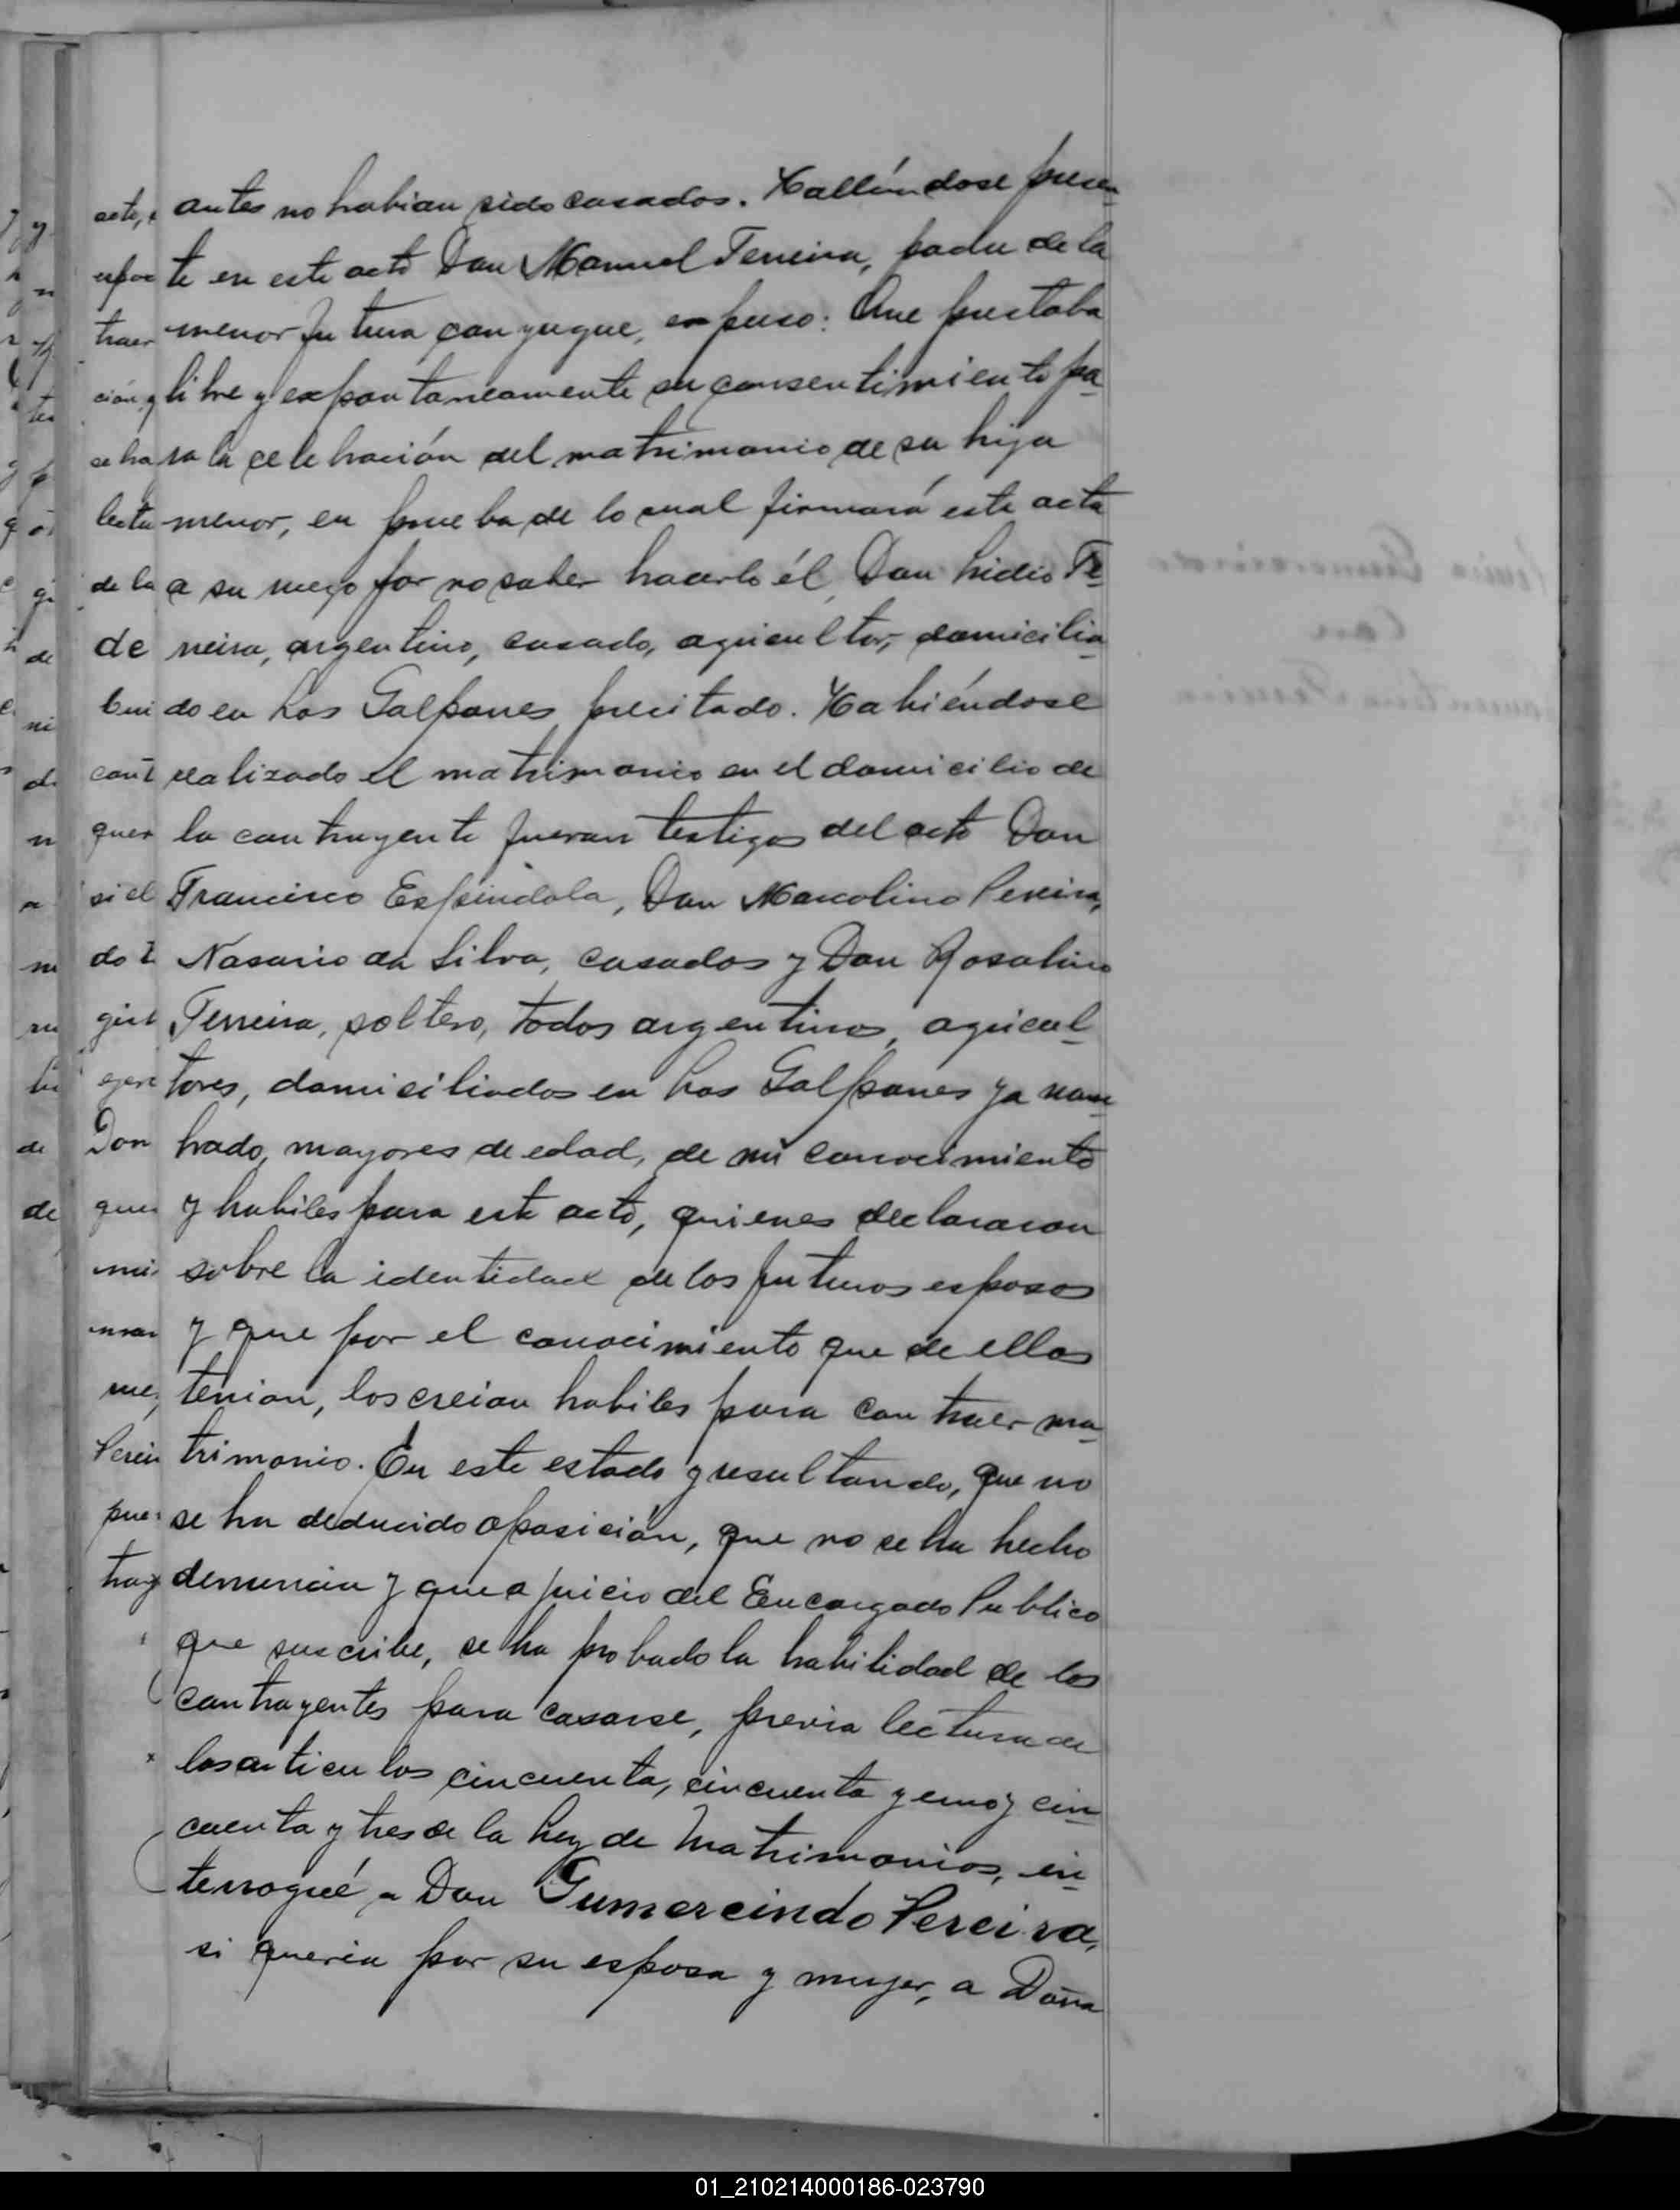 antes no habian sido casados. Hallándose presen
te en este acto Don Manuel Ferreira, padre de la
menor futura conyugue, expuso: Que prestaba
libre y expontaneamente su consentimiento pa-
ra la celebración del matrimonio de su hija
menor, en prueba de lo cual firmará este acta
a su ruego por no saber hacerlo él, Don Lidio Fe-
rreira, argentino, casado, agricultor, domicilia-
do en Los Galpones precitado. Habiéndose
realizado el matrimonio en el domicilio de
la contrayente fueron testigos del acto Don
Francisco Espindola, Don Marcolino Pereira,
Nasario da Silva, casados y Don Rosalino
Ferreira, soltero, todos argentinos, agricul-
tores, domiciliados en Los Galpones ya nom-
brado, mayores de edad, de mi conocimiento
y habiles para este acto, quienes declararon
sobre la identidad de los futuros esposos
y que por el conocimiento que de ellos
tenian, los creian habiles para contraer ma-
trimonio. En este estado y resultando, que no
se ha deducido oposición, que no se ha hecho
denuncia y que a juicio del Encargado Publico
que suscribe, se ha probado la habilidad de los
contrayentes para casarse, previa lectura de
los articulos cincuenta, cincuenta y uno y cin-
cuenta y tres de la Ley de Matrimonios, in-
terrogué a Don Gumercindo Pereira,
si queria por su esposa y mujer, a Doña
01_210214000186-023790